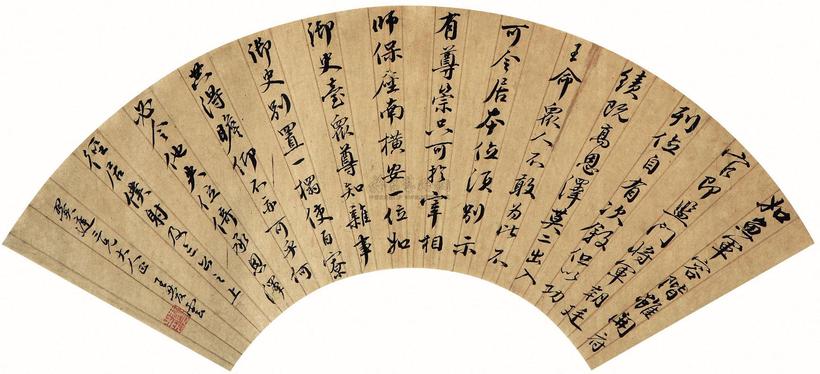 如魚軍容階雖開府
官即監門將軍朝廷
列位自有次敘但以功
績既高恩澤莫二出入
王命眾人不敢為比不
可令居本位須別示
有尊崇只可於宰相
師保座南橫安一位如
御史臺眾尊知雜事
御史別置一榻使百寮
共得瞻仰不亦可乎何
必令他失位倚承恩澤
徑居僕射及三公之上
三兄大人正